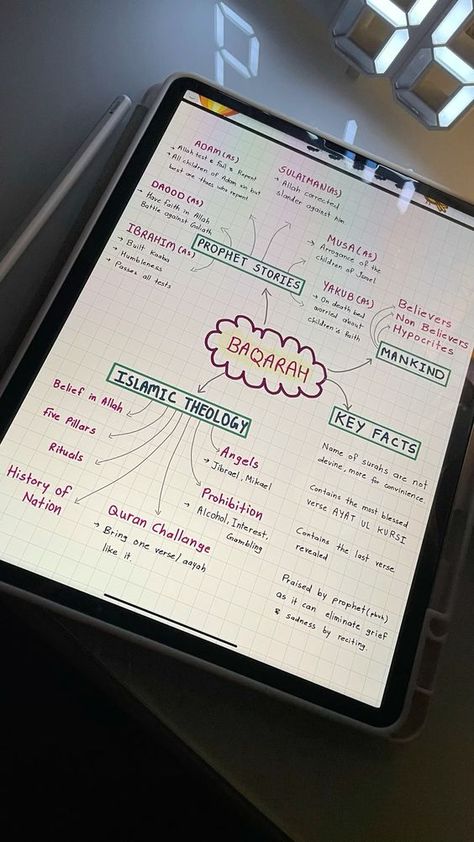 ADAM(AS)
→ Allah test & fail & Repent
→ All children of Adam sin but
best are those who repent
DAOOD (AS)
→ Have Faith in Allah
Battle against Goliath
IBRAHIM (AS)
→ Built Kaaba
→ Humbleness
→ Passes all tests
SULAIMAN(AS)
→ Allah corrected
slander against him
MUSA(AS)
→ Arrogance of the
children of Israel
YAKUB(AS)
→ On death bed
worried about
children's faith
PROPHET STORIES
BAQARAH
Believers
Non Believers
Hypocrites
MANKIND
ISLAMIC THEOLOGY
Belief in Allah
Five Pillars
Rituals
History of
Nation
Quran Challange
→ Bring one verse/aayah
like it.
Prohibition
→ Alcohol, Interest,
Gambling
Angels
→ Jibrael, Mikael
KEY FACTS
Name of surahs are not
devine, more for convinience.
Contains the most blessed
verse AYAT UL KURSI
Contains the last verse
revealed
Praised by prophet(pbuh)
as it can eliminate grief
& sadness by reciting.